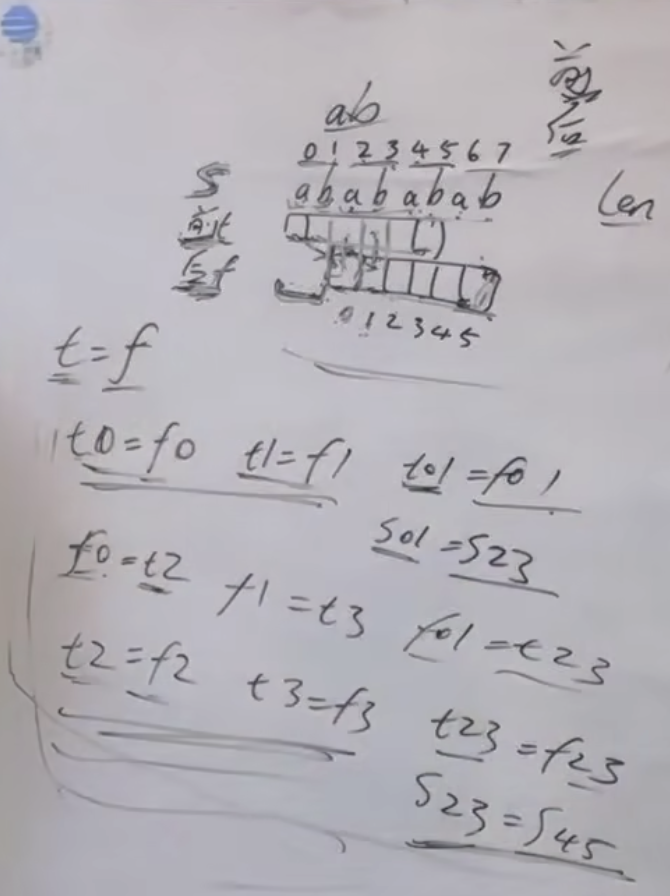 前
后
ab
0 1 2 3 4 5 6 7
S a b a b a b a b len
前t
后f
0 1 2 3 4 5
t=f
t0=f0 t1=f1 t01=f01
S01=S23
f0=t2 f1=t3 f01=t23
t2=f2 t3=f3 t23=f23
S23=S45